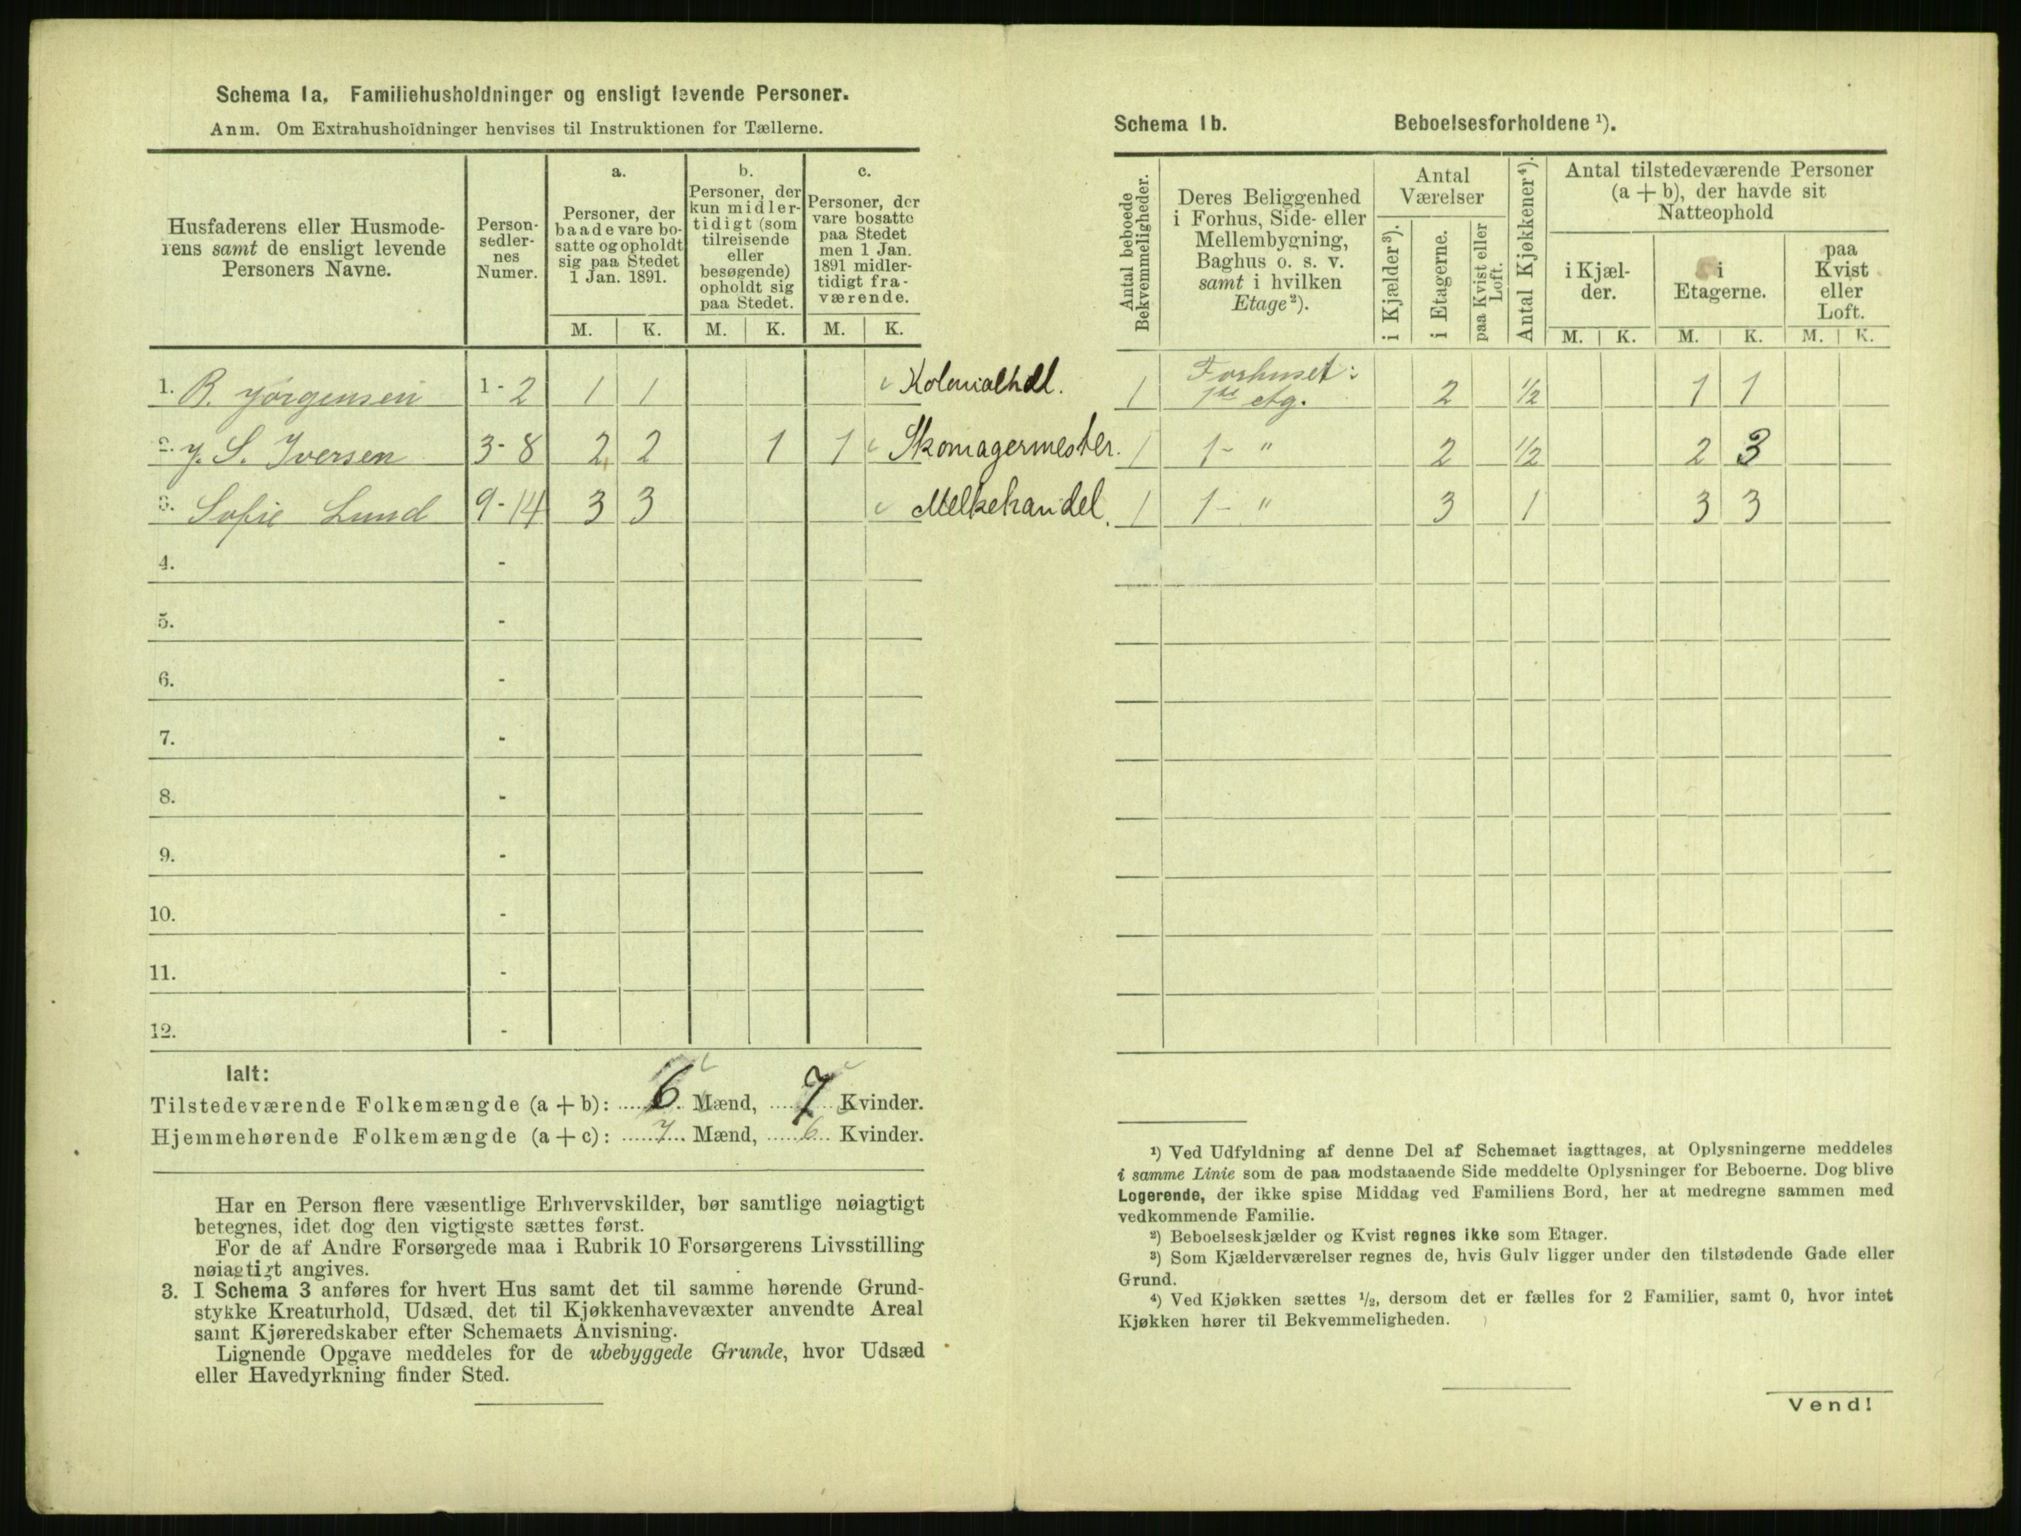 Schema 1a. Familiehusholdninger og ensligt levende Personer.
Anm. Om Extrahusholdninger henvises til Instruktionen for Tællerne.
Husfaderens eller Husmode-
rens samt de ensligt levende
Personers Navne.
Person-
sedler-
nes
Numer.
a.
Personer, der
baade vare bo-
satte og opholdt
sig paa Stedet
1 Jan. 1891.
b.
Personer, der
kun midler-
tidigt (som
tilreisende
eller
besøgende)
opholdt sig
paa Stedet.
c.
Personer, der
vare bosatte
paa Stedet
men 1 Jan.
1891 midler-
tidigt fra-
værende.
M. K. M. K. M. K.
1. B. Jørgensen 1-2 1 1 Kolonialhdl.
2. J. S. Iversen 3-8 2 2 1 1 Skomagermester.
3. Sofie Lund 9-14 3 3 Melkehandel.
4. -
5. -
6. -
7. -
8. -
9. -
10. -
11. -
12. -
Ialt:
Tilstedeværende Folkemængde (a + b): 6 Mænd, 7 Kvinder.
Hjemmehørende Folkemængde (a + c): 7 Mænd, 6 Kvinder.
Har en Person flere væsentlige Erhvervskilder, bør samtlige nøiagtigt
betegnes, idet dog den vigtigste sættes først.
For de af Andre Forsørgede maa i Rubrik 10 Forsørgerens Livsstilling
nøiagtigt angives.
3. I Schema 3 anføres for hvert Hus samt det til samme hørende Grund-
stykke Kreaturhold, Udsæd, det til Kjøkkenhavevæxter anvendte Areal
samt Kjøreredskaber efter Schemaets Anvisning.
Lignende Opgave meddeles for de ubebyggede Grunde, hvor Udsæd
eller Havedyrkning finder Sted.
Schema 1b. Beboelsesforholdene ¹).
Antal beboede
Bekvemmeligheder.
Deres Beliggenhed
i Forhus, Side- eller
Mellembygning,
Baghus o. s. v.
samt i hvilken
Etage²).
Antal
Værelser
i Kjælder³).
i Etagerne.
paa Kvist eller
Loft.
Antal Kjøkkener⁴).
Antal tilstedeværende Personer
(a + b), der havde sit
Natteophold
i Kjæl-
der.
i
Etagerne.
paa
Kvist
eller
Loft.
M. K. M. K. M. K.
1 Forhuset:
1ste etg. 2 ½ 1 1
1 1- " 2 ½ 2 3
1 1- " 3 1 3 3
¹) Ved Udfyldning af denne Del af Schemaet iagttages, at Oplysningerne meddeles
i samme Linie som de paa modstaaende Side meddelte Oplysninger for Beboerne. Dog blive
Logerende, der ikke spise Middag ved Familiens Bord, her at medregne sammen med
vedkommende Familie.
²) Beboelseskjælder og Kvist regnes ikke som Etager.
³) Som Kjælderværelser regnes de, hvis Gulv ligger under den tilstødende Gade eller
Grund.
⁴) Ved Kjøkken sættes ½, dersom det er fælles for 2 Familier, samt 0, hvor intet
Kjøkken hører til Bekvemmeligheden.
Vend!